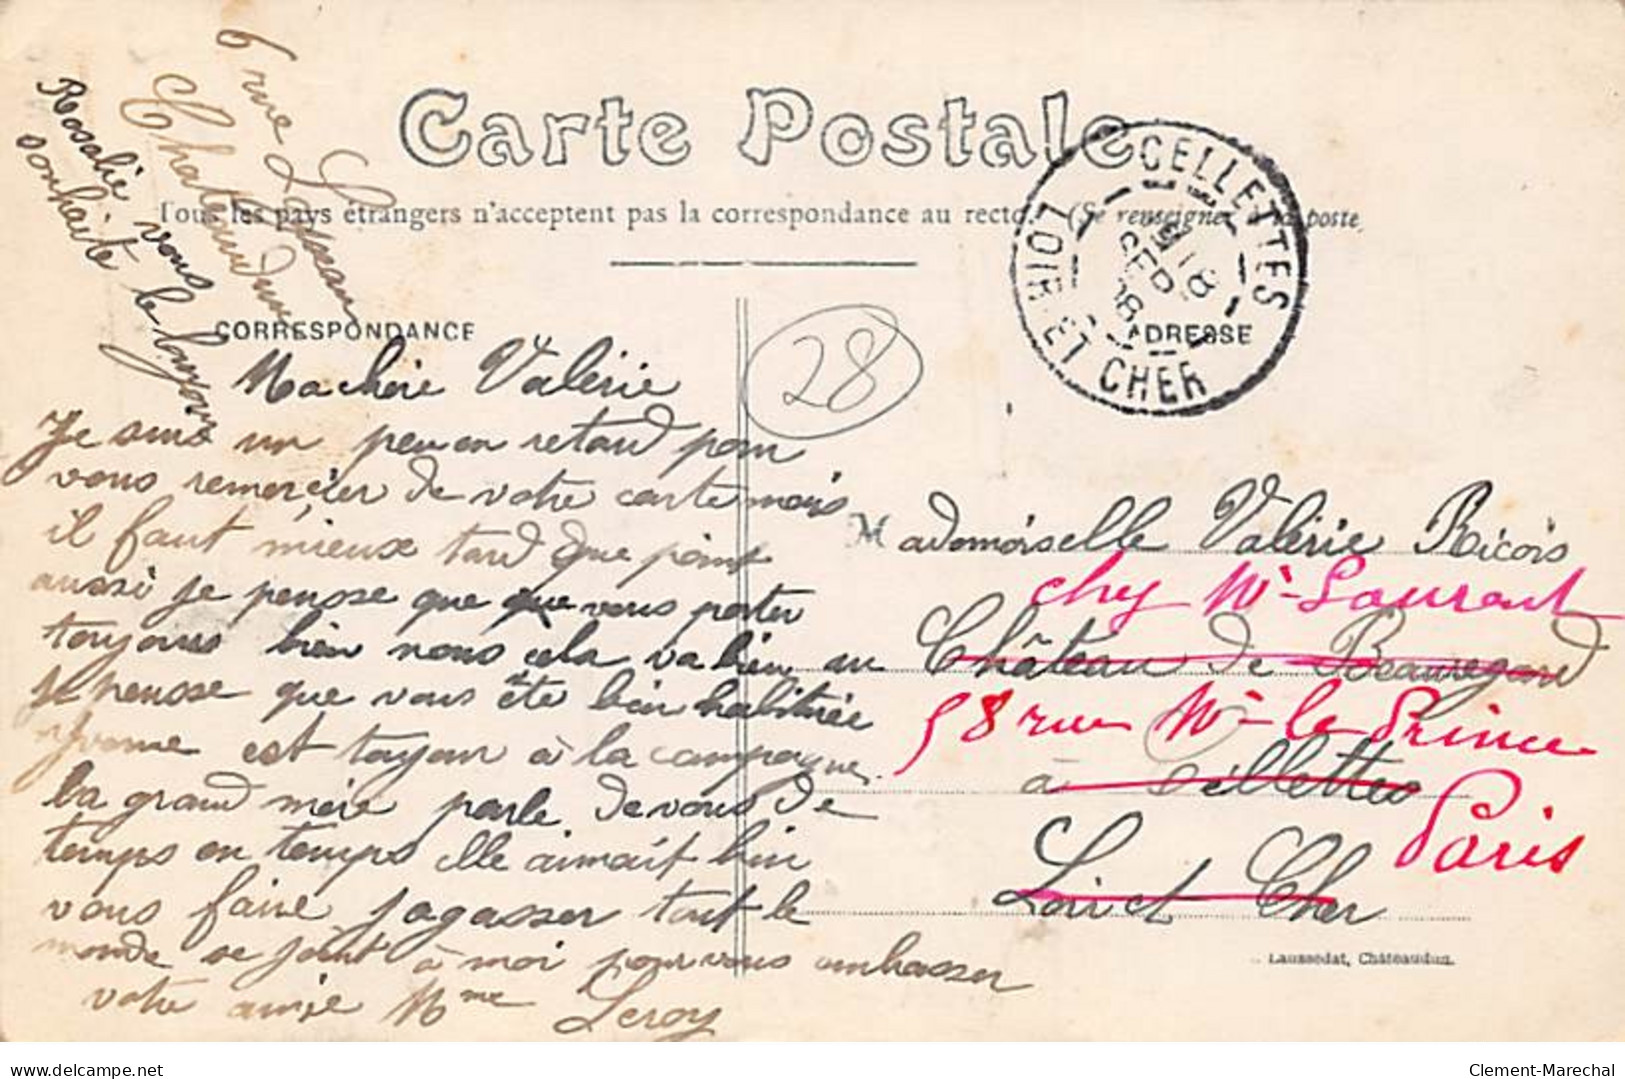 6 rue Loyseau
Chateaudun
Rosalie vous
souhaite le bonjour
Carte Postale
Tous les pays étrangers n'acceptent pas la correspondance au recto. (Se renseigner à la poste
CELLETTES
LOIR-ET-CHER
18
SEPT
08
CORRESPONDANCE
ADRESSE
28
Ma chère Valérie
Je suis un peu en retard pour
vous remercier de votre carte mais
il faut mieux tard que point
aussi je pensse que vous porter
toujours bien nous cela va bien
je pensse que vous ête bien habituée
Yvonne est toujour à la campagne
la grand mère parle de vous de
temps en temps elle aimait bien
vous faire jagasser tout le
monde se joint à moi pour vous embrasser
votre amie Mme Leroy
Mademoiselle Valérie Ricois
chez Mr Laurent
au Château de Beauregard
58 rue Mr le Prince
à Cellettes
Paris
Loir et Cher
Laussedat, Châteaudun.
delcampe.net
Clement-Marechal